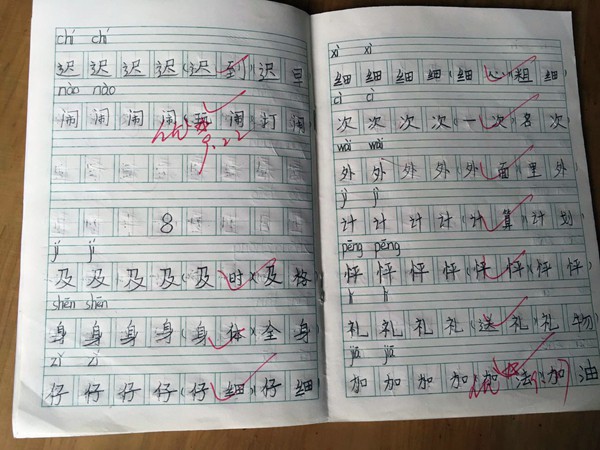 chí chí
迟 迟 迟 迟 (迟 到)(迟 早)
nào nào
闹 闹 闹 闹 (闹)(打 闹)
9.22
8
jí jí
及 及 及 及 (及 时)(及 格)
shēn shēn
身 身 身 身 (身 体)(全 身)
zǐ zǐ
仔 仔 仔 仔 (仔 细)(仔 细)
xì xì
细 细 细 细 (细 心)(粗 细)
cì cì
次 次 次 次 (一 次)(名 次)
wài wài
外 外 外 外 (外 面)(里 外)
jì jì
计 计 计 计 (计 算)(计 划)
pēng pēng
怦 怦 怦 怦 (怦 怦)(怦 怦)
lǐ lǐ
礼 礼 礼 礼 (送 礼)(礼 物)
jiā jiā
加 加 加 加 (加 法)(加 油)